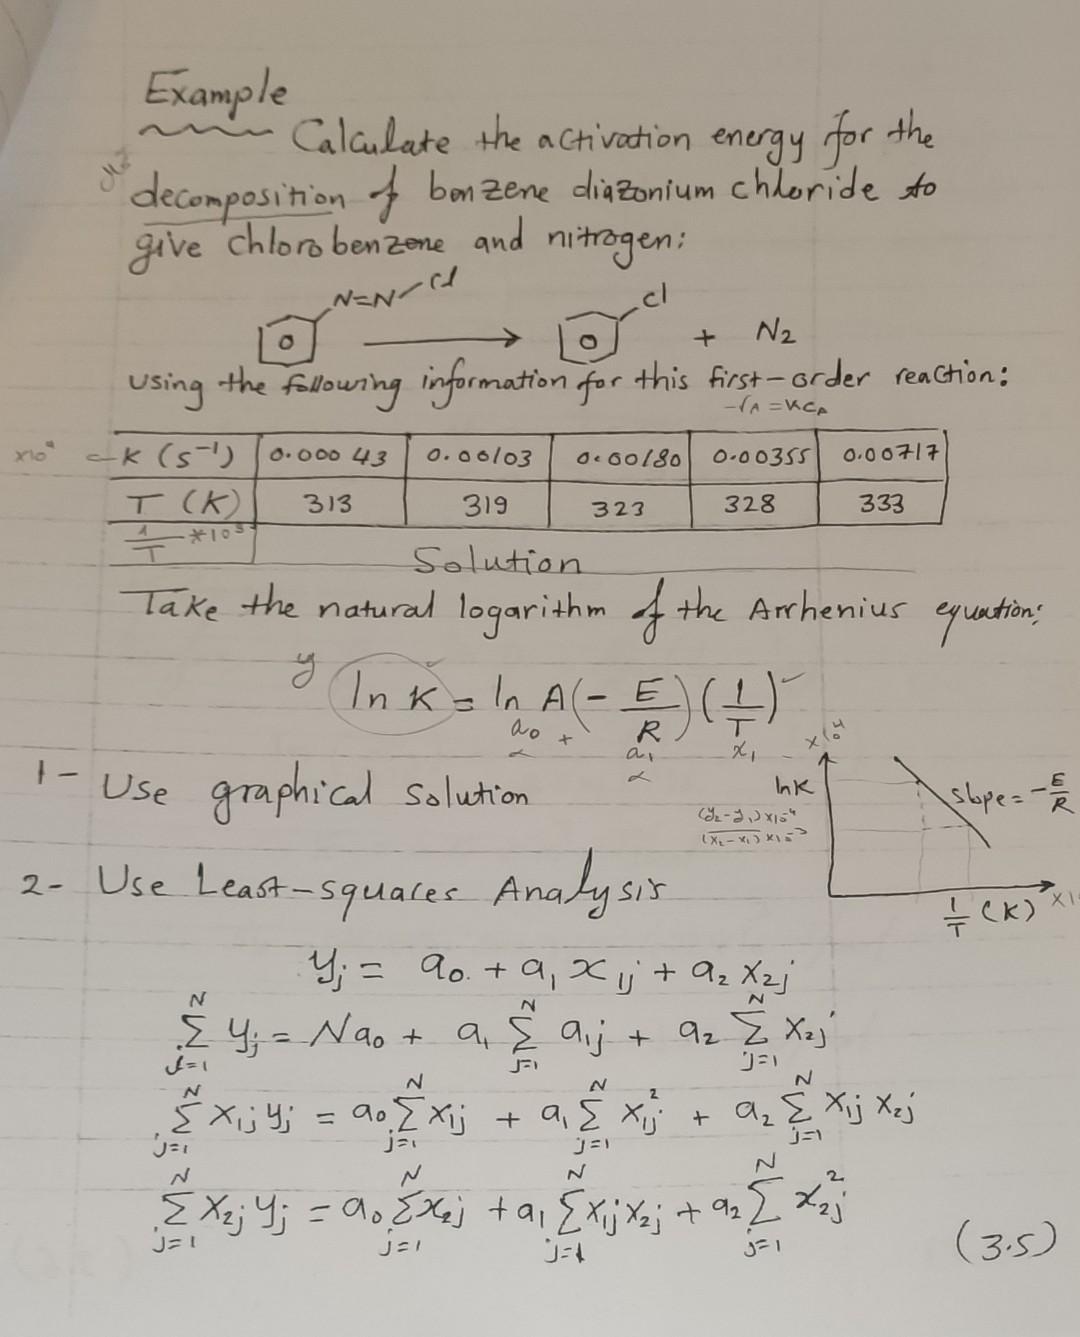 Example
Calculate the activation energy for the
decomposition of benzene diazonium chloride to
give chlorobenzene and nitrogen:
N=N Cl
Cl
+ N2
using the following information for this first-order reaction:
-rA = KCA
K (s⁻¹) 0.00043 0.00103 0.00180 0.00355 0.00717
T (K) 313 319 323 328 333
1/T *10³
Solution
Take the natural logarithm of the Arrhenius equation:
y
ln K = ln A (- E/R) (1/T)
a0 + a1 x1
1- Use graphical solution
ln K
(y2-y1) x10⁻⁴
(x2-x1) x10⁻³
slope = -E/R
1/T (K)
2- Use Least-squares Analysis
yj = a0 + a1 x1j + a2 x2j
∑_{j=1}^{N} yj = Na0 + a1 ∑_{j=1}^{N} a1j + a2 ∑_{j=1}^{N} x2j
∑_{j=1}^{N} x1j yj = a0 ∑_{j=1}^{N} x1j + a1 ∑_{j=1}^{N} x1j² + a2 ∑_{j=1}^{N} x1j x2j
∑_{j=1}^{N} x2j yj = a0 ∑_{j=1}^{N} x2j + a1 ∑_{j=1}^{N} x1j x2j + a2 ∑_{j=1}^{N} x2j²
(3.5)